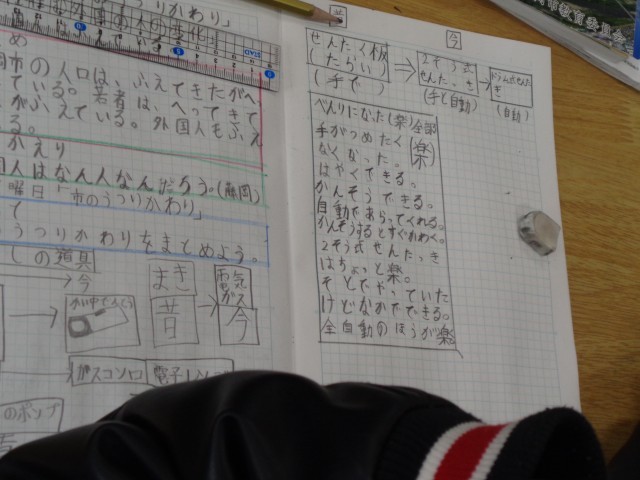 うつりかわり」
市の人口の変化
め
岡市の人口は、ふえてきたがへ
ている。若者は、へってきて
がふえている。外国人もふえ
る。
かえり
人はなん人なんだろう。(藤岡)
曜日「市のうつりかわり」
て
うつりかわりをまとめよう。
しの道具
→今
かい中でんとう
まき
昔
電気
ガス
今
ガスコンロ
電子レンジ
のポンプ
昔
今
せんたく板
(たらい)
(手で)
2そう式
せんたっき
(手と自動)
ドラム式せんたっ
き
(自動)
べんりになた(楽)全部
手がつめたく(楽)
なくなった。
はやくできる。
かんそうできる。
自動であらってくれる。
かんそうするとすぐかわく。
2そう式せんたっき
はちょっと楽。
そとでやっていた
けどなかでできる。
全自動のほうが楽
市教育委員会